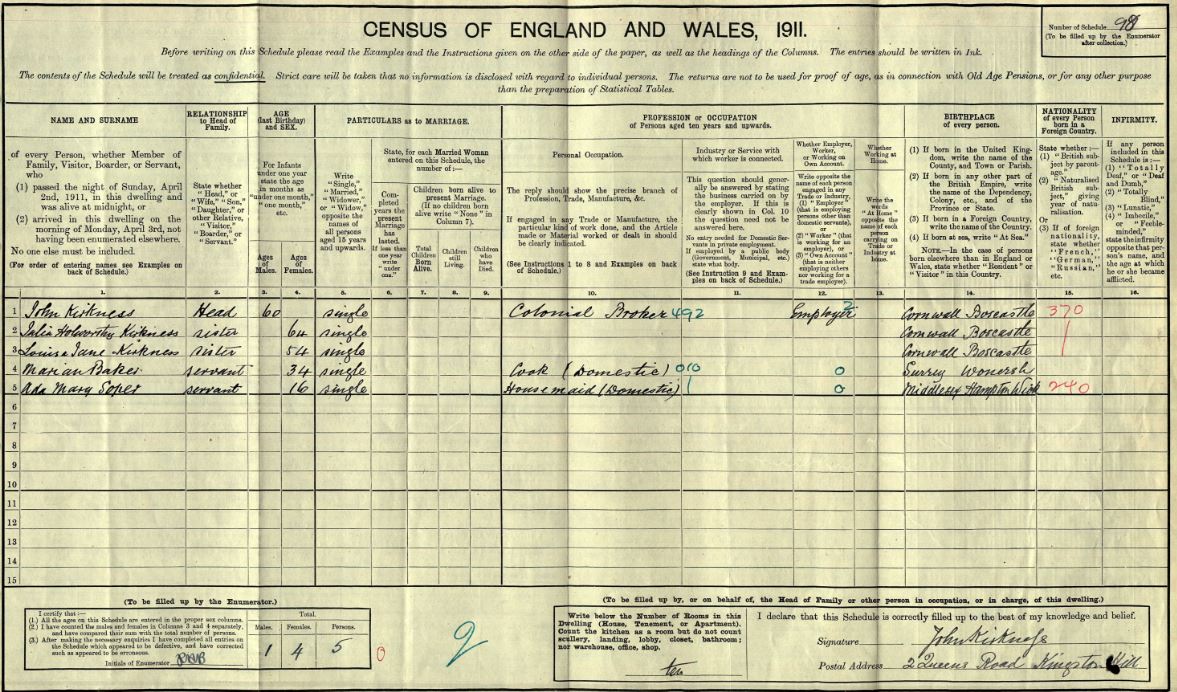 CENSUS OF ENGLAND AND WALES, 1911.
Number of Schedule 98
(To be filled up by the Enumerator
after collection.)
Before writing on this Schedule please read the Examples and the Instructions given on the other side of the paper, as well as the headings of the Columns. The entries should be written in Ink.
The contents of the Schedule will be treated as confidential. Strict care will be taken that no information is disclosed with regard to individual persons. The returns are not to be used for proof of age, as in connection with Old Age Pensions, or for any other purpose
than the preparation of Statistical Tables.
NAME AND SURNAME
of every Person, whether Member of
Family, Visitor, Boarder, or Servant,
who
(1) passed the night of Sunday, April
2nd, 1911, in this dwelling and
was alive at midnight, or
(2) arrived in this dwelling on the
morning of Monday, April 3rd, not
having been enumerated elsewhere.
No one else must be included.
(For order of entering names see Examples on
back of Schedule.)
RELATIONSHIP
to Head of
Family.
State whether
"Head," or
"Wife," "Son,"
"Daughter," or
other Relative,
"Visitor,"
"Boarder," or
"Servant."
AGE
(last Birthday)
and SEX.
For Infants
under one year
state the age
in months as
"under one month,"
"one month,"
etc.
Ages
of
Males.
Ages
of
Females.
PARTICULARS as to MARRIAGE.
Write
"Single,"
"Married,"
"Widower,"
or "Widow,"
opposite the
names of
all persons
aged 15 years
and upwards.
State, for each Married Woman
entered on this Schedule, the
number of:—
Completed
years the
present
Marriage
has
lasted.
If less than
one year
write
"under
one."
Children born alive to
present Marriage.
(If no children born
alive write "None" in
Column 7).
Total
Children
Born
Alive.
Children
still
Living.
Children
who
have
Died.
PROFESSION or OCCUPATION
of Persons aged ten years and upwards.
Personal Occupation.
The reply should show the precise branch of
Profession, Trade, Manufacture, &c.
If engaged in any Trade or Manufacture, the
particular kind of work done, and the Article
made or Material worked or dealt in should
be clearly indicated.
(See Instructions 1 to 8 and Examples on back
of Schedule.)
Industry or Service with
which worker is connected.
This question should generally
be answered by stating
the business carried on by
the employer. If this is
clearly shown in Col. 10
the question need not be
answered here.
No entry needed for Domestic Servants
in private employment.
If employed by a public body
(Government, Municipal, etc.)
state what body.
(See Instruction 9 and Examples
on back of Schedule.)
Whether Employer,
Worker,
or Working on
Own Account.
Write opposite the
name of each person
engaged in any
Trade or Industry,
(1) "Employer"
(that is employing
persons other than
domestic servants),
or
(2) "Worker" (that
is working for an
employer), or
(3) "Own Account"
(that is neither
employing others
nor working for a
trade employer).
Whether
Working at
Home.
Write the
words
"At Home"
opposite the
name of each
person
carrying on
Trade or
Industry at
home.
BIRTHPLACE
of every person.
(1) If born in the United Kingdom,
write the name of the
County, and Town or Parish.
(2) If born in any other part of
the British Empire, write
the name of the Dependency,
Colony, etc., and of the
Province or State.
(3) If born in a Foreign Country,
write the name of the Country.
(4) If born at sea, write "At Sea."
NOTE.—In the case of persons
born elsewhere than in England or
Wales, state whether "Resident" or
"Visitor" in this Country.
NATIONALITY
of every Person
born in a
Foreign Country.
State whether:—
(1) "British subject
by parentage."
(2) "Naturalised
British subject,"
giving
year of naturalisation.
Or
(3) If of foreign
nationality,
state whether
"French,"
"German,"
"Russian,"
etc.
INFIRMITY.
If any person
included in this
Schedule is:—
(1) "Totally
Deaf," or "Deaf
and Dumb,"
(2) "Totally
Blind,"
(3) "Lunatic,"
(4) "Imbecile,"
or "Feeble-minded,"
state the infirmity
opposite that person's
name, and
the age at which
he or she became
afflicted.
1. 2. 3. 4. 5. 6. 7. 8. 9. 10. 11. 12. 13. 14. 15. 16.
1 John Kirkness Head 60 single Colonial Broker 492 Employer 2 Cornwall Boscastle 370
2 Julia Holworthy Kirkness sister 64 single Cornwall Boscastle
3 Louisa Jane Kirkness sister 54 single Cornwall Boscastle
4 Marian Baker servant 34 single Cook (Domestic) 010 0 Surrey Wonersh
5 Ada Mary Soper servant 16 single Housemaid (Domestic) 1 0 Middlesex Hampton Wick 240
6
7
8
9
10
11
12
13
14
15
(To be filled up by the Enumerator.)
I certify that:—
(1.) All the ages on this Schedule are entered in the proper sex columns.
(2.) I have counted the males and females in Columns 3 and 4 separately,
and have compared their sum with the total number of persons.
(3.) After making the necessary enquiries I have completed all entries on
the Schedule which appeared to be defective, and have corrected
such as appeared to be erroneous.
Initials of Enumerator
Total.
Males. Females. Persons.
1 4 5
0
9
(To be filled up by, or on behalf of, the Head of Family or other person in occupation, or in charge, of this dwelling.)
Write below the Number of Rooms in this
Dwelling (House, Tenement, or Apartment).
Count the kitchen as a room but do not count
scullery, landing, lobby, closet, bathroom;
nor warehouse, office, shop.
ten
I declare that this Schedule is correctly filled up to the best of my knowledge and belief.
Signature John Kirkness
Postal Address 2 Queens Road Kingston Hill